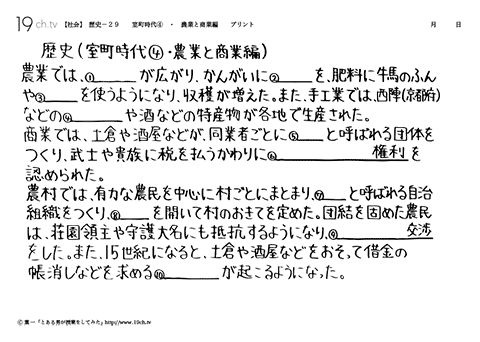 19ch.tv 【社会】 歴史-29 室町時代④ ・ 農業と商業編 プリント 月 日
歴史(室町時代④・農業と商業編)
農業では、①______が広がり、かんがいに②______を、肥料に牛馬のふん
や③______を使うようになり、収穫が増えた。また、手工業では、西陣(京都府)
などの④______や酒などの特産物が各地で生産された。
商業では、土倉や酒屋などが、同業者ごとに⑤______と呼ばれる団体を
つくり、武士や貴族に税を払うかわりに⑥______権利を
認められた。
農村では、有力な農民を中心に村ごとにまとまり、⑦______と呼ばれる自治
組織をつくり、⑧______を開いて村のおきてを定めた。団結を固めた農民
は、荘園領主や守護大名にも抵抗するようになり、⑨______交渉
をした。また、15世紀になると、土倉や酒屋などをおそって借金の
帳消しなどを求める⑩______が起こるようになった。
© 葉一「とある男が授業をしてみた」http://www.19ch.tv